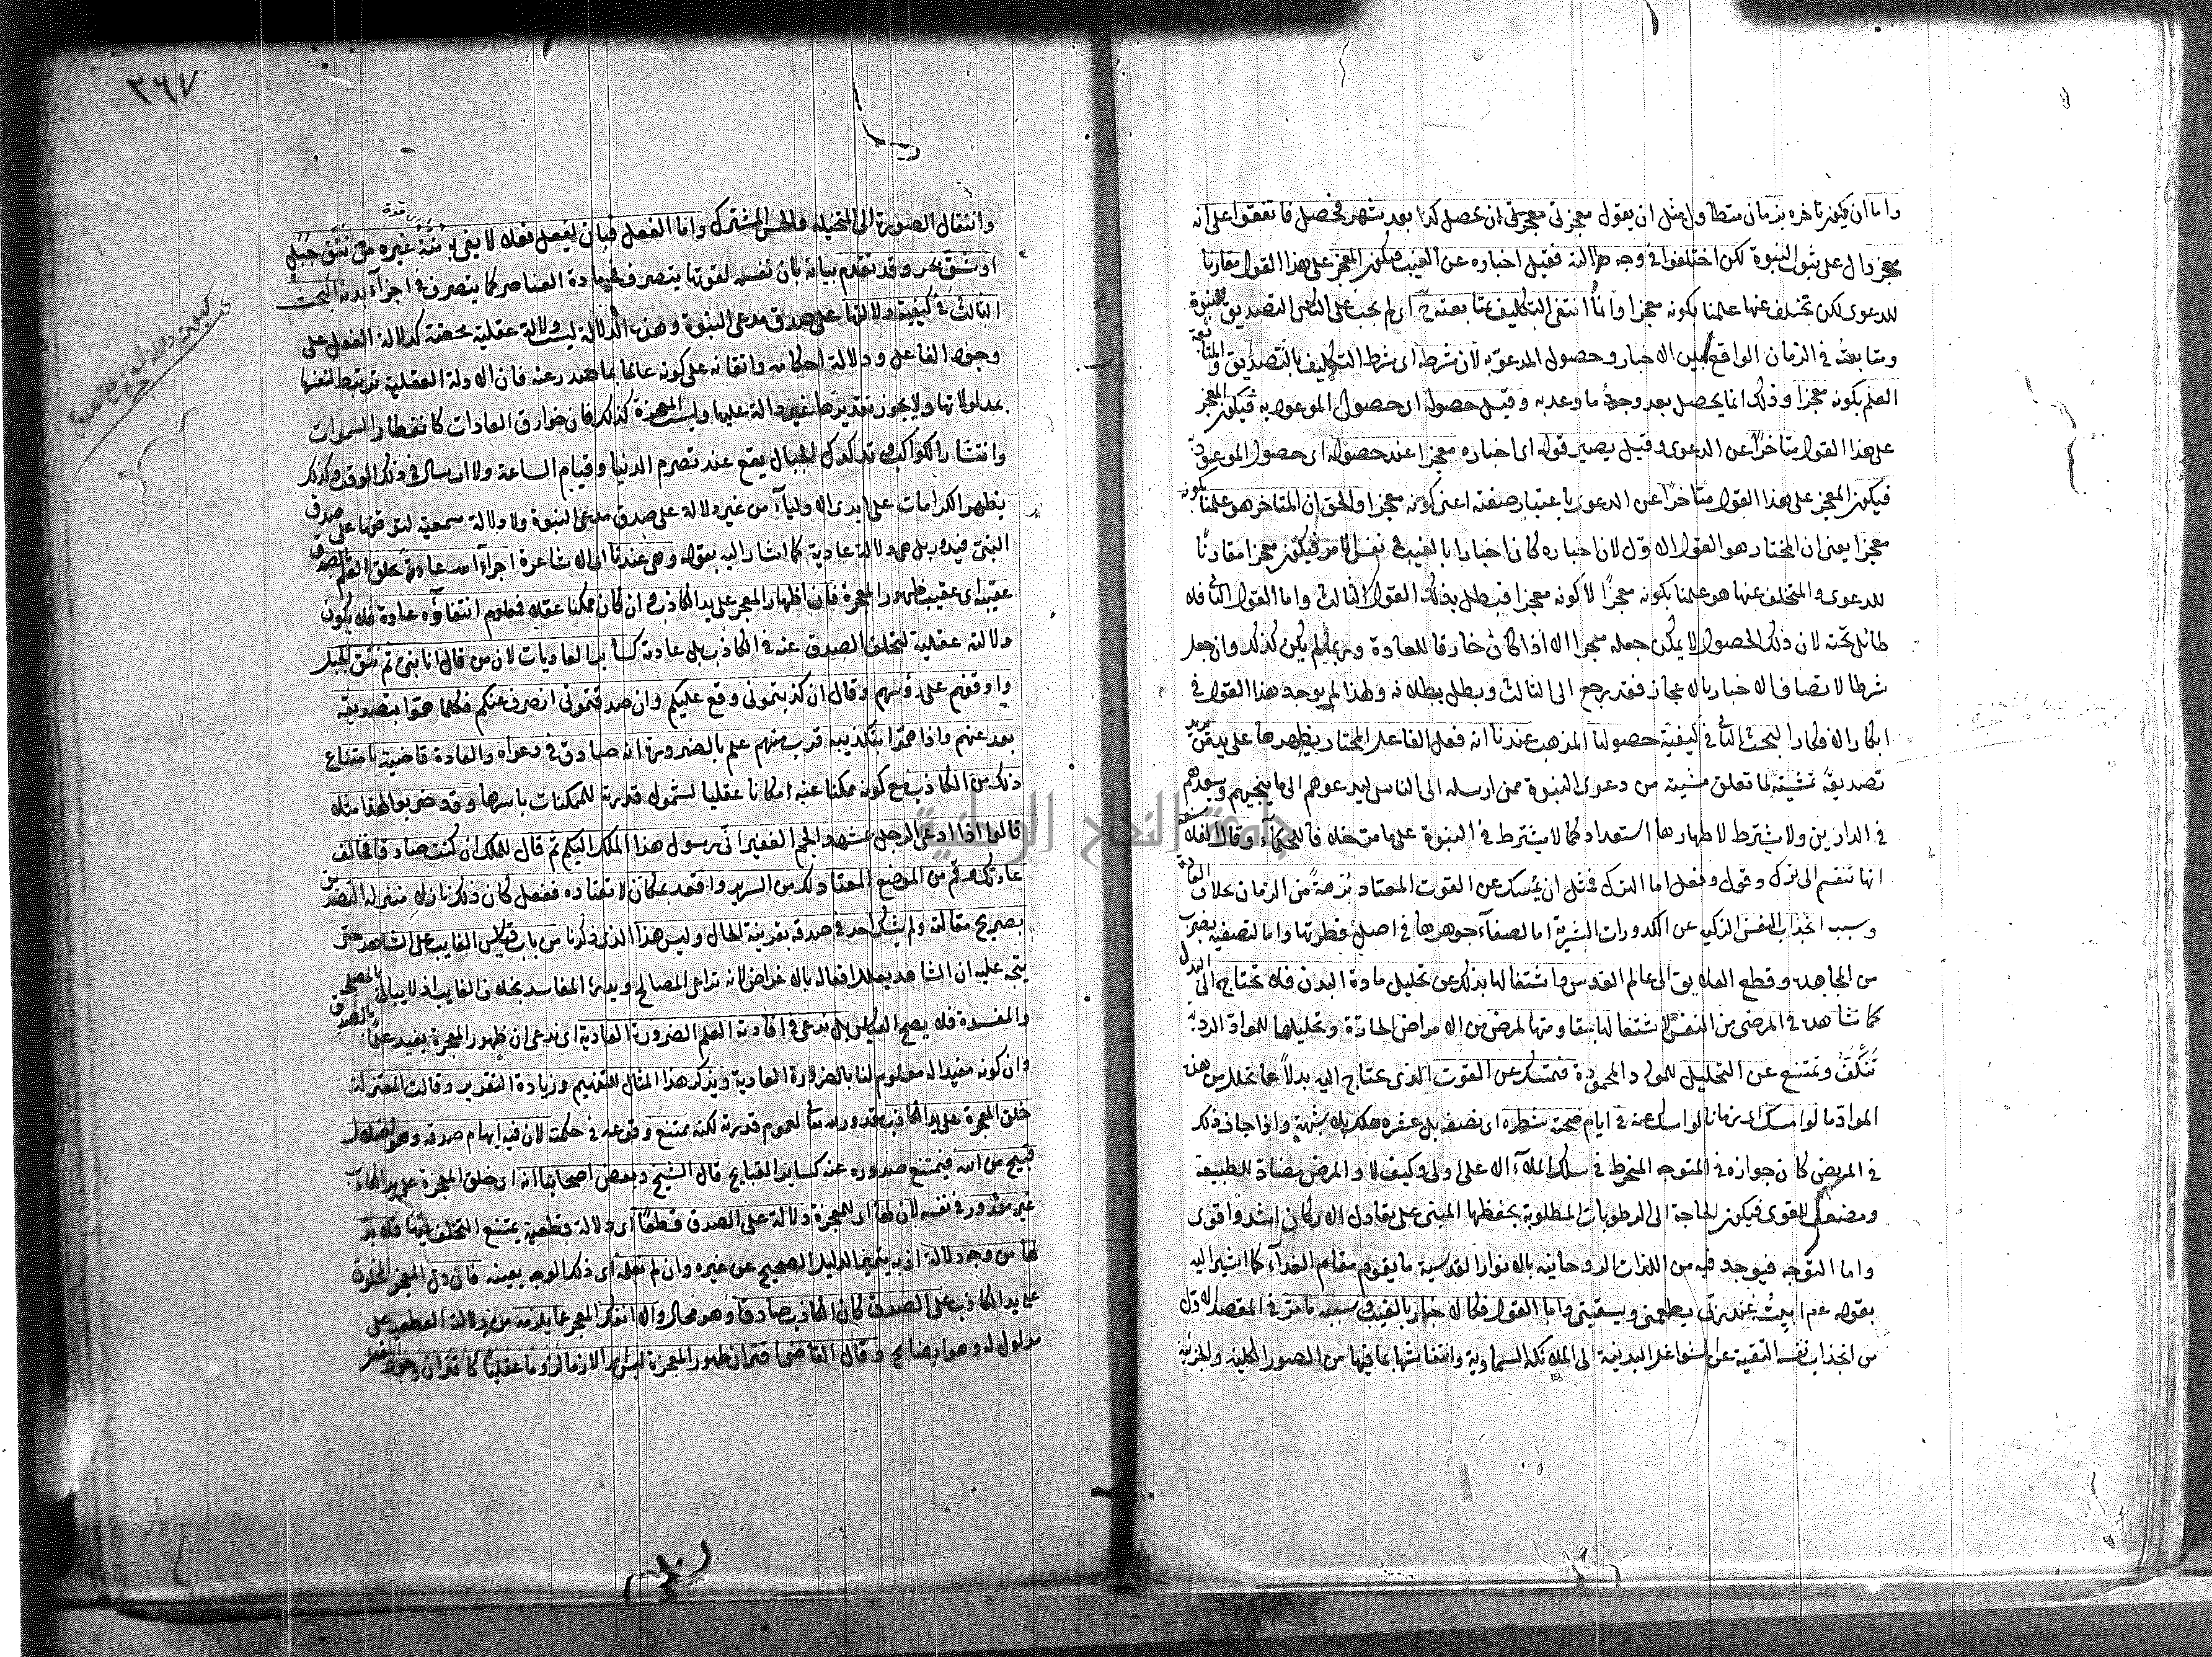 واما ان يكون تاخره بزمان متطاول مثل ان يقول معجزتى ان يحصل كذا بعد شهر فحصل فاتفقوا على انه
معجز دال على ثبوت النبوة لكن اختلفوا فى وجه دلالته فقيل اخباره عن الغيب فيكون المعجز على هذا القول مقارنا
للدعوى لكن تخلف عنها علمنا بكونه معجزا وانما انتفى التكليف بمتابعته ح اى لم يجب على الناس التصديق للنبوة
ومتابعته فى الزمان الواقع بين الاخبار وحصول الموعود به لان شرطه اى شرط التكليف بالتصديق والمتابعة
العلم بكونه معجزا وذلك انما يحصل بعد وجود ما وعد به وقيل حصوله اى حصول الموعود به فيكون المعجز
على هذا القول متاخرا عن الدعوى وقيل يصير قوله اى اخباره معجزا عند حصوله اى حصول الموعود به
فيكون المعجز على هذا القول متاخرا عن الدعوى باعتبار صفته اعنى كونه معجزا والحق ان المتاخر هو علمنا بكونه
معجزا يعنى ان المختار هو القول الاول لان اخباره كان اخبارا بالغيب فى نفس الامر فيكون معجزا مقارنا
للدعوى والمتخلف عنها هو علمنا بكونه معجزا لا كونه معجزا فبطل بذلك القول الثالث واما القول الثانى فلا
طائل تحته لان ذلك الحصول لا يمكن جعله معجزا الا اذا كان خارقا للعادة وربما لم يكن كذلك وان جعل
شرطا لاتصاف الاخبار بالاعجاز فقد رجع الى الثالث وبطل ببطلانه ولهذا لم يوجد هذا القول فى
ابكار الافكار البحث الثانى فى كيفية حصولها المذهب عندنا انه فعل الفاعل المختار يظهرها على يد من يريد
تصديقه بمشيته لما تعلق مشيته من دعوى النبوة ممن ارسله الى الناس ليدعوهم الى ما ينجيهم ويسعدهم
فى الدارين ولا يشترط لاظهارها استعداد كما لا يشترط فى النبوة على ما مر خلافا للحكماء وقال الفلاسفة
انها تنقسم الى ترك وقول وفعل اما الترك فمثل ان يمسك عن القوت المعتاد برهة من الزمان بخلاف العادة
وسبب انجذاب النفس الزكية عن الكدورات البشرية اما لصفاء جوهرها فى اصل فطرتها واما لتصفيه بضرب
من المجاهدة وقطع العلايق الى عالم القدس واشتغالها بذلك عن تحليل مادة البدن فلا تحتاج الى البدل
كما نشاهده فى المرضى من ان النفس لاشتغالها بمقاومتها لمرض من الامراض الحادة وتحليلها للمواد الردية
تنكف وتمتنع عن التحليل للمواد المحمودة فتمسك عن القوت الذى يحتاج اليه بدلا عما تحلل من هذه
المواد ما لو امسك اى زمانا لو امسك عنه فى ايام صحته شطره اى نصفه بل عشره هلك بلا شبهة واذا جاز ذلك
فى المريض كان جوازه فى المتوجه المنخرط فى سلك الملاء الاعلى اولى وكيف لا والمرض مضاد للطبيعة
ومضعف للقوى فيكون الحاجة الى الرطوبات المطلوبة بحفظها المبنى على تعادل الاركان اشد واقوى
واما التوجه فيوجد فيه من اللذات الروحانية بالانوار القدسية ما يقوم مقام الغذاء كما اشير اليه
بقوله عم ابيت عند ربى يطعمنى ويسقينى واما القول فكالاخبار بالغيب وسببه ما مر فى المقصد الاول
من انجذاب نفسه النقية عن الشواغل البدنية الى الملائكة السماوية وانتقاشها بما فيها من الصور الكلية والجزئية
٣٦٧
وانتقال الصورة الى المتخيلة والحس المشترك واما الفعل فبان يفعل فعلا لا يفى به منة غيره من نتق جبل
او شق بحر وقد تقدم بيانه بان نفسه لقوتها يتصرف فى مادة العناصر كما يتصرف فى اجزاء بدنه البحث
الثالث فى كيفية دلالتها على صدق مدعى النبوة وهذه الدلالة ليست دلالة عقلية محضة كدلالة الفعل على
وجود الفاعل ودلالة احكامه واتقانه على كونه عالما بما صدر عنه فان الادلة العقلية ترتبط لنفسها
بمدلولاتها ولا يجوز تقديرها غير دالة عليها وليست المعجزة كذلك فان خوارق العادات كانفطار السموات
وانتشار الكواكب وتدكدك الجبال يقع عند تصرم الدنيا وقيام الساعة ولا ارسال فى ذلك الوقت وكذلك
يظهر الكرامات على ايدى الاولياء من غير دلالة على صدق مدعى النبوة ولا دلالة سمعية لتوقفها على صدق
النبى فيدور بل هى دلالة عادية كما اشار اليه بقوله وهى عندنا اى الاشاعرة اجراء الله عادته بخلق العلم بالصدق
عقيبه اى عقيب ظهور المعجزة فان اظهار المعجز على يد الكاذب وان كان ممكنا عقلا فمعلوم انتفاؤه عادة فلا يكون
دلالته عقلية لتخلف الصدق عنه فى الكاذب بل عادية كسائر العاديات لان من قال انا نبى ثم نتق الجبل
واوقفه على رؤسهم وقال ان كذبتمونى وقع عليكم وان صدقتمونى انصرف عنكم فكلما هموا بتصديقه
بعد عنهم واذا هموا بتكذيبه قرب منهم علم بالضرورة انه صادق فى دعواه والعادة قاضية بامتناع
ذلك من الكاذب مع كونه ممكنا عنه امكانا عقليا لشمول قدرته للممكنات باسرها وقد ضربوا لهذا مثلا
قالوا اذا ادعى الرجل بمشهد الجم الغفير انى رسول هذا الملك اليكم ثم قال للملك ان كنت صادقا فخالف
عادتك وقم من الموضع المعتاد لك من السرير واقعد بمكان لا تعتاده ففعل كان ذلك نازلا منزلة التصديق
بصريح مقالته ولم يشك احد فى صدقه بقرينة الحال وليس هذا الذى ذكرنا من باب قياس الغايب على الشاهد حتى
يتجه عليه ان الشاهد يعلل افعاله بالاغراض لانه يراعى المصالح ويدرء المفاسد بخلاف الغايب اذ لا يبالى بالمصلحة
والمفسدة فلا يصح القياس بل ندعى فى افادته العلم الضرورة العادية اى ندعى ان ظهور المعجزة يفيد علما بالصدق
وان كونه مفيدا له معلوم لنا بالضرورة العادية ونذكر هذا المثال للتفهيم وزيادة التقرير وقالت المعتزلة
خلق المعجزة على يد الكاذب مقدور لله تعالى لعموم قدرته لكنه ممتنع وقوعه فى حكمته لان فيه ايهام صدقه وهو اضلال
قبيح من الله فيمتنع صدوره عنه كسائر القبايح قال الشيخ وبعض اصحابنا انه اى خلق المعجزة على يد الكاذب
غير مقدور فى نفسه لان لها اى للمعجزة دلالة على الصدق قطعا اى دلالة قطعية يمتنع التخلف فيها فلا بد
لها من وجه دلالة اذ به يتميز الدليل الصحيح عن غيره وان لم نعلمه اى ذلك الوجه بعينه فان دل المعجز المخلوق
على يد الكاذب على الصدق كان الكاذب صادقا وهو محال والا انفك المعجز عما يلزمه من دلالته القطعية على
مدلوله وهو ايضا مح وقال القاضى اقتران ظهور المعجزة بالصدق ليس امرا لازما لزوما عقليا كاقتران وجود الفعل